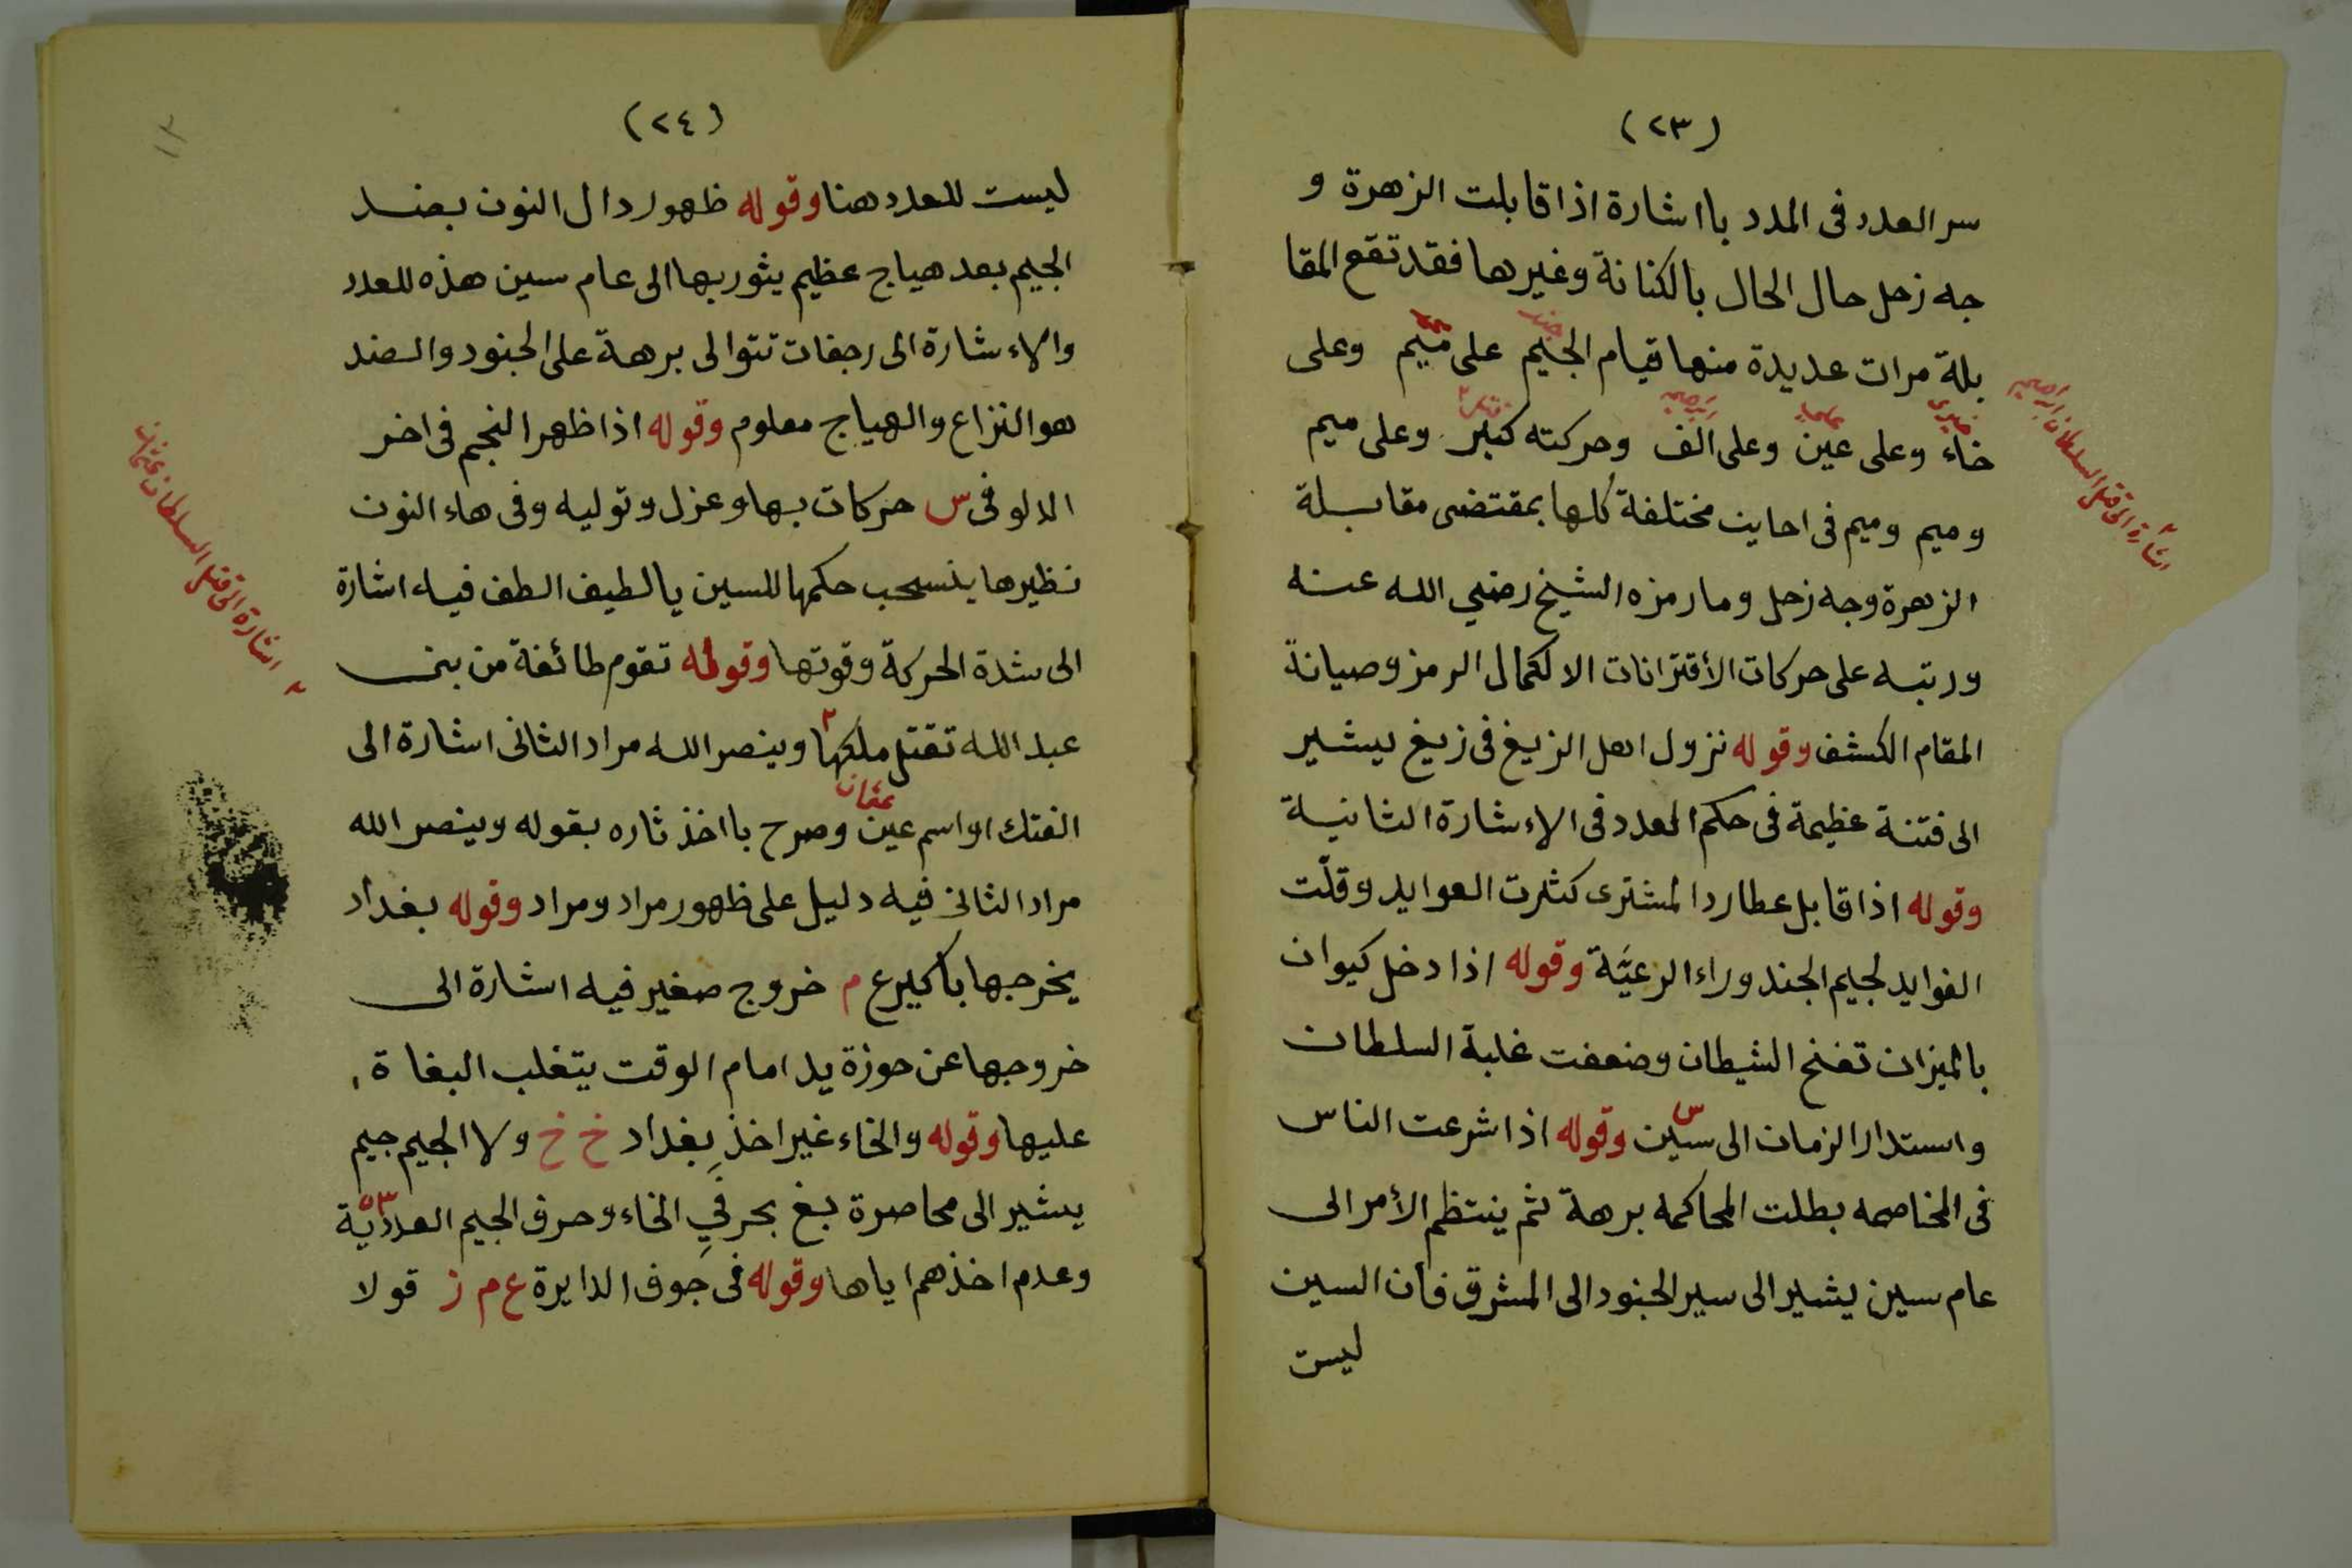 (٢٣)
سر العدد فى المدد با اشارة اذا قابلت الزهرة و
جه زحل حال الحال بالكنانة وغيرها فقد تقع المقا
بلة مرات عديدة منها قيام الجيم على ميم وعلى
جند
خاء وعلى عين وعلى الف وحركته كبير وعلى ميم
وميم وميم فى احاين مختلفة كلها بمقتضى مقابلة
الزهرة وجه زحل وما رمزه الشيخ رضي الله عنه
ورتبه على حركات الأقترانات الا لكمال الرمز وصيانة
المقام الكشف وقوله نزول اهل الزيغ فى زيغ يشير
الى فتنة عظيمة فى حكم العدد فى الاءشارة الثانية
وقوله اذا قابل عطارد المشترى كثرت العوايد وقلّت
الفوايد لجيم الجند وراء الرعيَّة وقوله اذا دخل كيوان
بالميزان تفنح الشيطان وضعفت غلبة السلطان
واستدار الزمان الى سين وقوله اذا شرعت الناس
س
فى المخاصمه بطلت المحاكمه برهة ثم ينتظم الأمر الى
عام سين يشير الى سير الجنود الى المشرق فأن السين
ليست
اشارة الى قتل السلطان ابراهيم
(٢٤)
١٣
ليست للعدد هنا وقوله ظهور دال النون بضد
الجيم بعد هياج عظيم يثور بها الى عام سين هذه للعدد
والاءشارة الى رجفات تتوالى برهة على الجنود والضد
هو النزاع والهياج معلوم وقوله اذا ظهر النجم فى اخر
الدلو فى س حركات بها وعزل وتوليه وفى هاء النون
نظيرها ينسحب حكمها للسين يالطيف الطف فيه اشارة
الى شدة الحركة وقوتها وقوله تقوم طائفة من بنى
عبد الله تقتل ملكها وينصر الله مراد الثانى اشارة الى
٢
الفتك او اسم عين وصرح با اخذ ثاره بقوله وينصر الله
عثمان
مراد الثانى فيه دليل على ظهور مراد ومراد وقوله بغداد
يخرجها باكير ع م خروج صغير فيه اشارة الى
خروجها عن حوزة يد امام الوقت يتغلب البغاة
عليها وقوله والخاء غير اخذ بِغداد خ خ ولا الجيم جيم
يشير الى محاصرة بغ بحرفيِ الخاء وحرف الجيم العدديّة
وعدم اخذهم اياها وقوله فى جوف الدايرة ع م ز قولا
٢ اشارة الى قتل السلطان عثمان